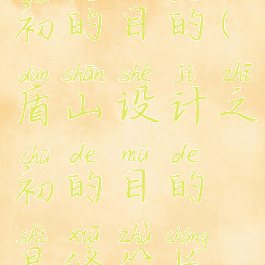 初的目的(
dùn shān shè jì zhī
盾山设计之
chū de mù de
初的目的
shì xiū zhù cháng